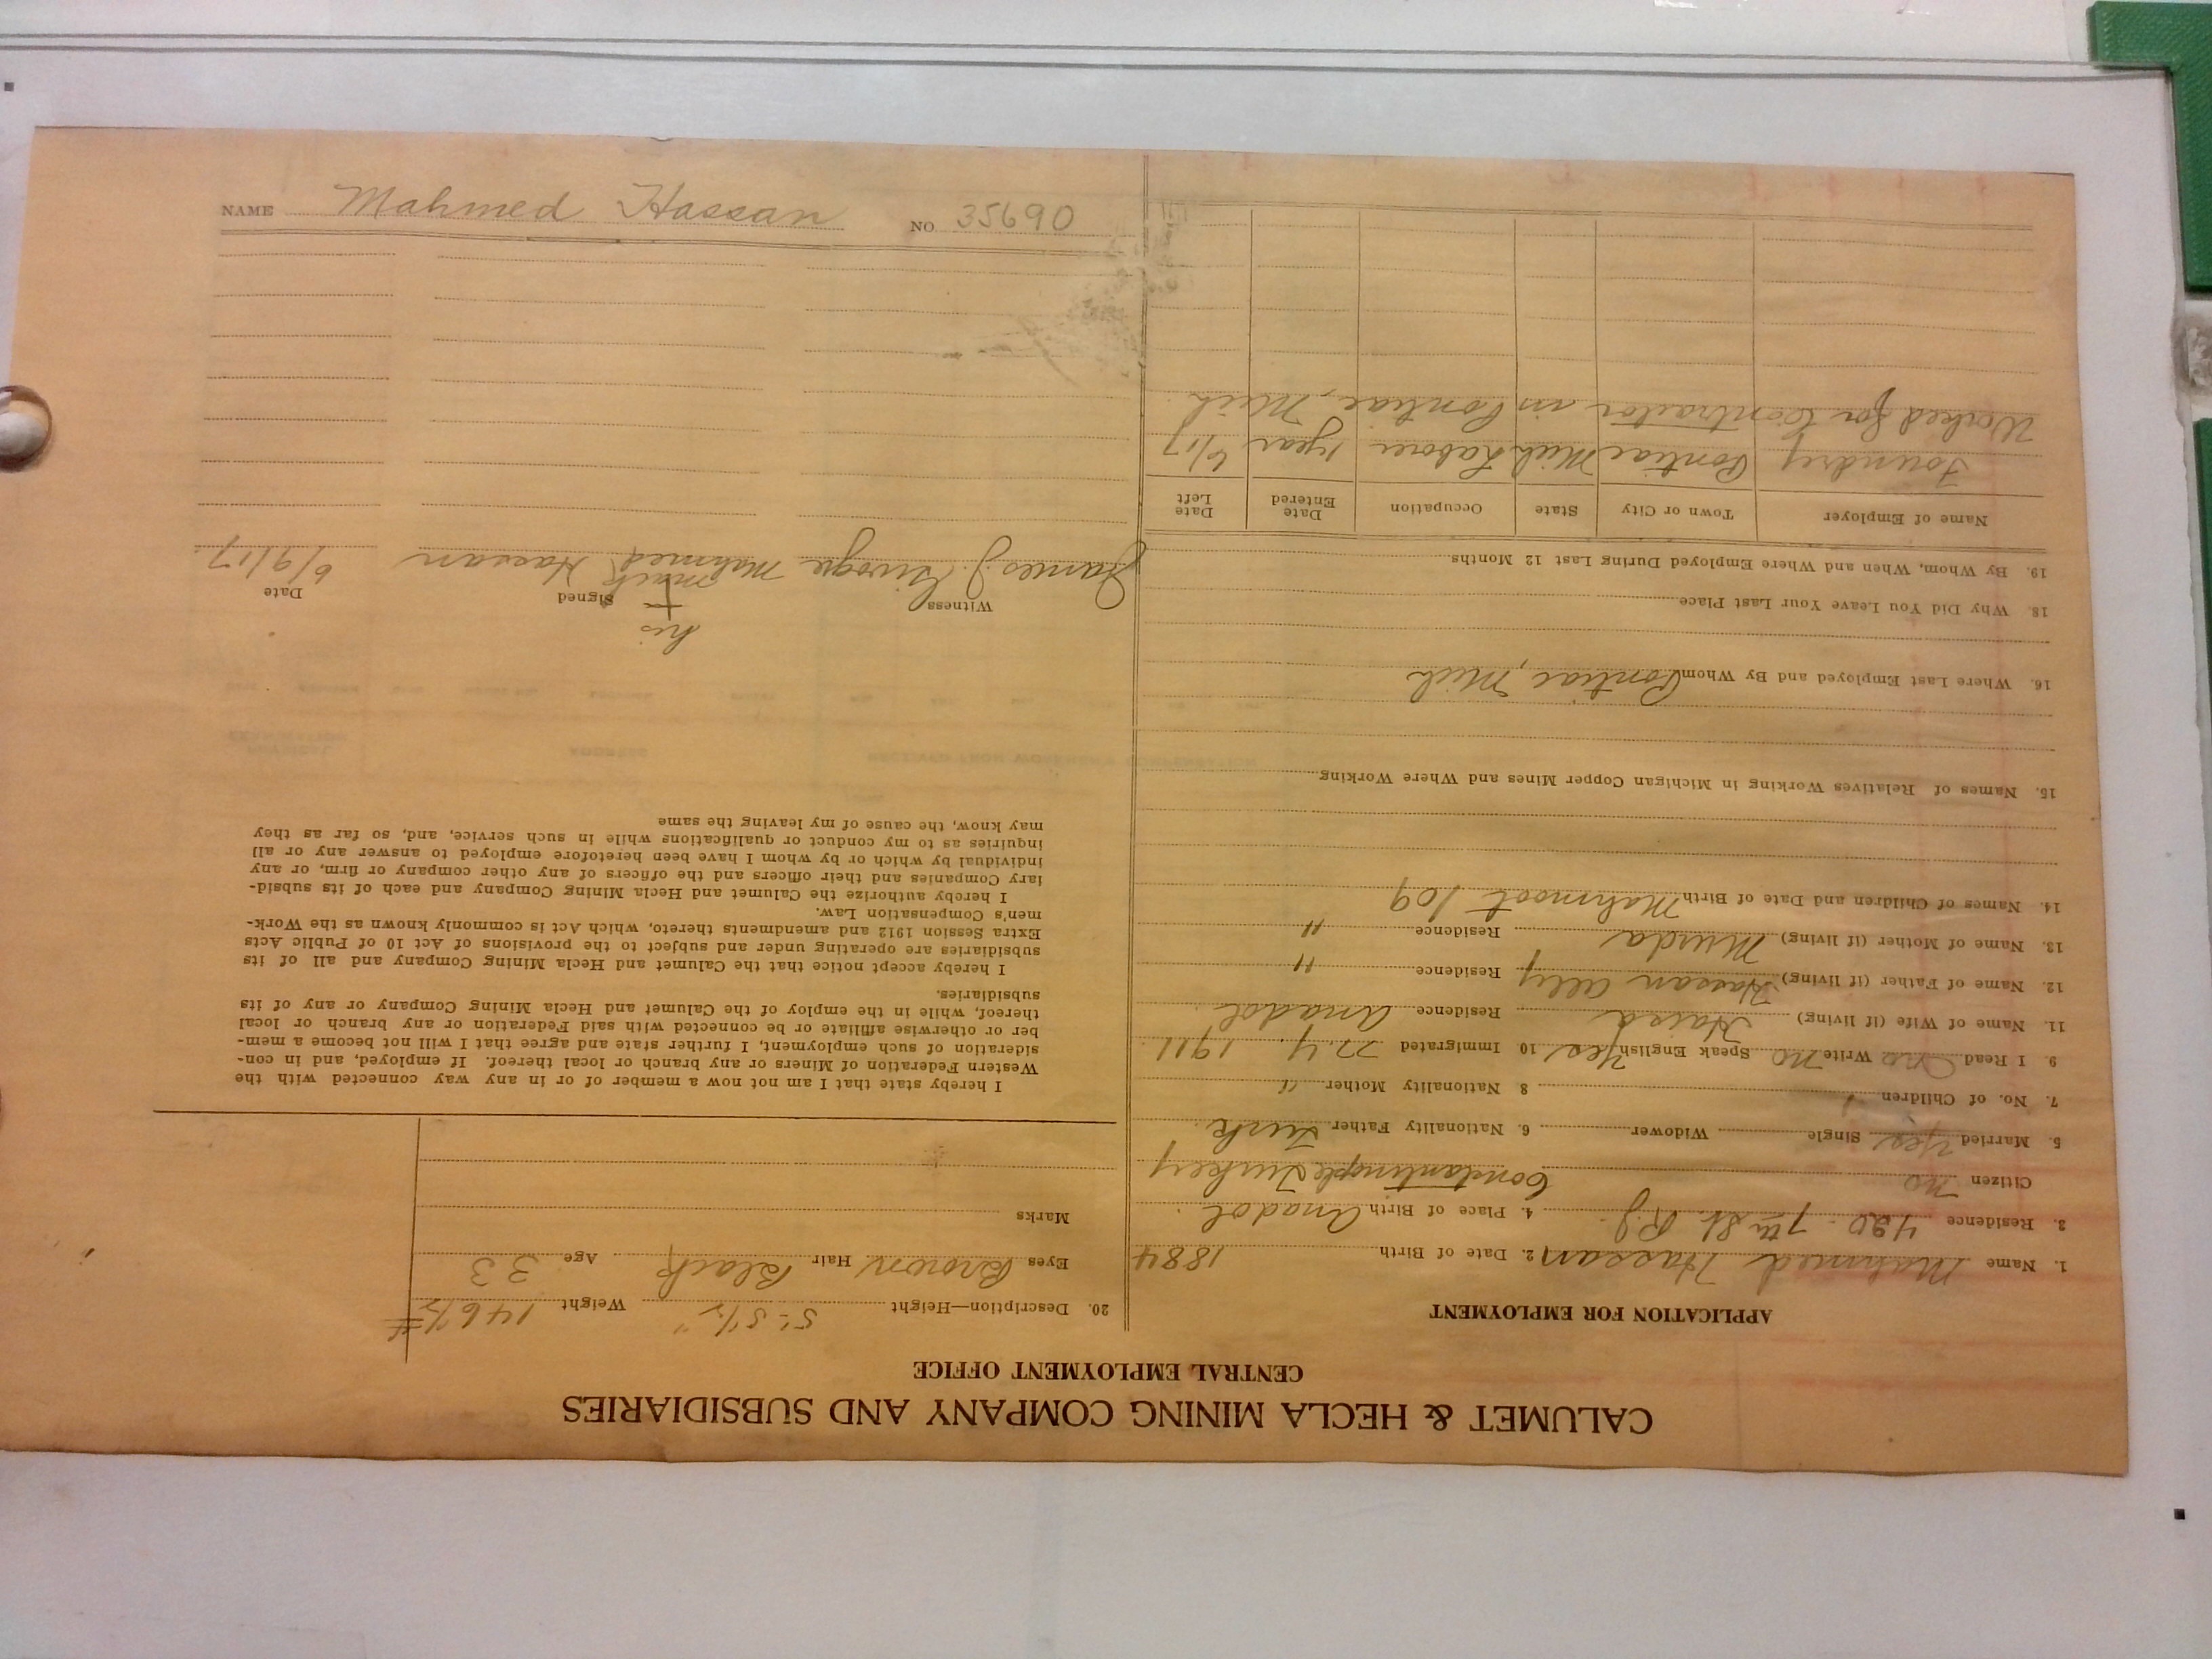 CALUMET & HECLA MINING COMPANY AND SUBSIDIARIES
CENTRAL EMPLOYMENT OFFICE
APPLICATION FOR EMPLOYMENT
1. Name Mahmed Hassan 2. Date of Birth 1884
3. Residence 420 - 7th St. R.J. 4. Place of Birth Anadol.
Citizen no Constantinople Turkey
5. Married Yes Single Widower 6. Nationality Father Turk
7. No. of Children 1 8 Nationality Mother "
9. I Read no Write no Speak English Yes 10 Immigrated n.y. 1911
11. Name of Wife (if living) Residence Anadol
12. Name of Father (if living) Hassan Ally Residence "
13. Name of Mother (if living) Murda Residence "
14. Names of Children and Date of Birth Mahmoot 109
15. Names of Relatives Working in Michigan Copper Mines and Where Working
16. Where Last Employed and By Whom Pontiac, Mich
18. Why Did You Leave Your Last Place
19. By Whom, When and Where Employed During Last 12 Months
Name of Employer Town or City State Occupation Date Entered Date Left
Foundry Pontiac Mich Laborer 1 year 6/17
Worked for Contractor in Pontiac, Mich.
20. Description—Height 5'-5 1/2" Weight 146 1/2 #
Eyes Brown Hair Black Age 33
Marks
I hereby state that I am not now a member of or in any way connected with the
Western Federation of Miners or any branch or local thereof. If employed, and in con-
sideration of such employment, I further state and agree that I will not become a mem-
ber or otherwise affiliate or be connected with said Federation or any branch or local
thereof, while in the employ of the Calumet and Hecla Mining Company or any of its
subsidiaries.
I hereby accept notice that the Calumet and Hecla Mining Company and all of its
subsidiaries are operating under and subject to the provisions of Act 10 of Public Acts
Extra Session 1912 and amendments thereto, which Act is commonly known as the Work-
men's Compensation Law.
I hereby authorize the Calumet and Hecla Mining Company and each of its subsid-
iary Companies and their officers and the officers of any other company or firm, or any
individual by which or by whom I have been heretofore employed to answer any or all
inquiries as to my conduct or qualifications while in such service, and, so far as they
may know, the cause of my leaving the same
his
Witness Signed + Date
mark
James J. Mahmed Hassan 6/9/17.
NAME Mahmed Hassan NO 35690